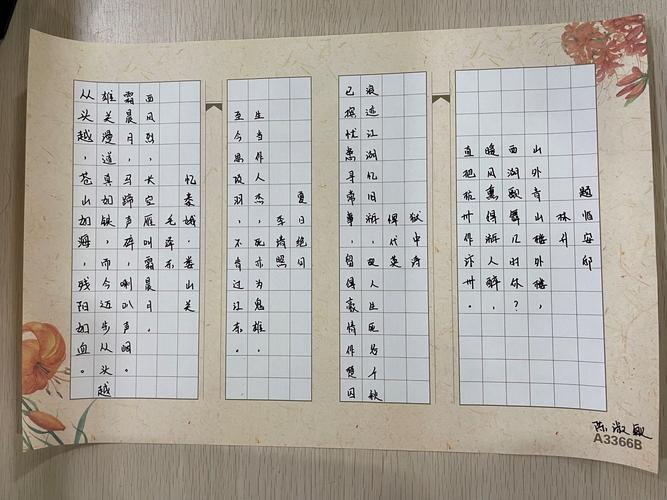 题临安邸
林升
山外青山楼外楼，
西湖歌舞几时休？
暖风熏得游人醉，
直把杭州作汴州。
狱中诗
恽代英
浪迹江湖忆旧游，故人生死各千秋
已摈忧患寻常事，留得豪情作楚囚
夏日绝句
李清照
生当作人杰，死亦为鬼雄。
至今思项羽，不肯过江东。
忆秦娥·娄山关
毛泽东
西风烈，长空雁叫霜晨月。
霜晨月，马蹄声碎，喇叭声咽。
雄关漫道真如铁，而今迈步从头越
从头越，苍山如海，残阳如血。
陈淑敏
A3366B